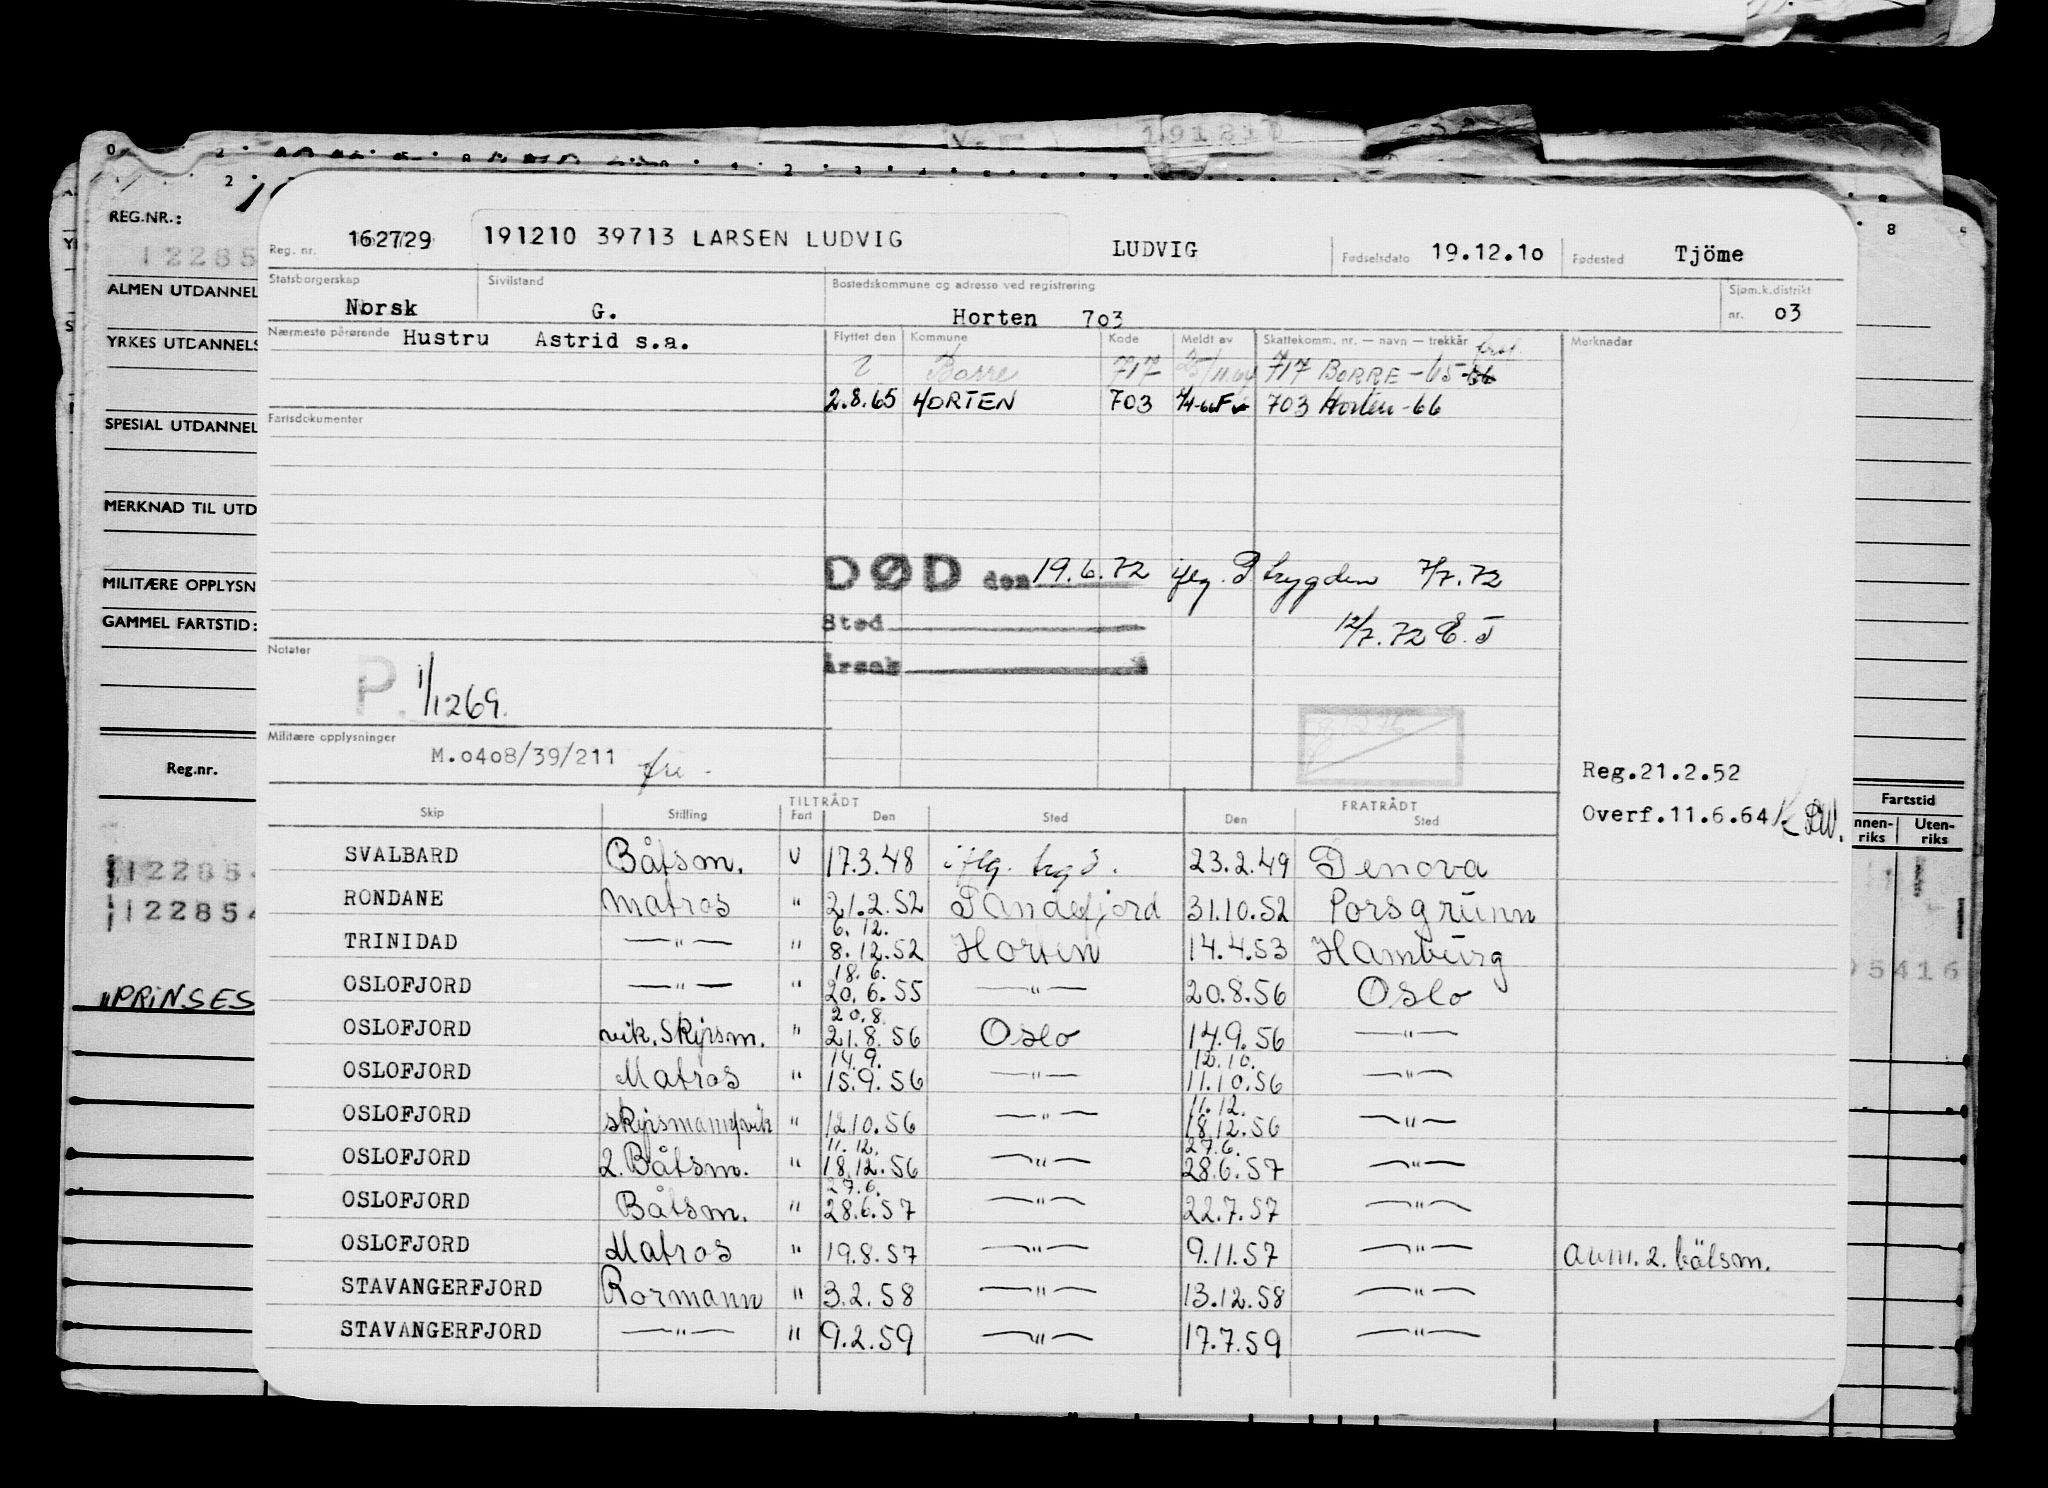 191210
REG.NR.:
12285
ALMEN UTDANNEL
YRKES UTDANNELS
SPESIAL UTDANNEL
MERKNAD TIL UTD
MILITÆRE OPPLYSN
GAMMEL FARTSTID:
Reg.nr.
12285
122854
"PRINSES
Reg. nr. 162729 191210 39713 LARSEN LUDVIG LUDVIG Fødselsdato 19.12.10 Fødested Tjöme
Statsborgerskap Norsk Sivilstand G. Bostedskommune og adresse ved registrering Horten 703 Sjøm.k.distrikt nr. 03
Nærmeste pårørende Hustru Astrid s.a. Flyttet den Kommune Kode Meldt av Skattekomm. nr. — navn — trekkår Merknader
? Borre 717 25/11.64 717 BORRE -65
2.8.65 HORTEN 703 703 Horten-66
Fartsdokumenter
DØD den 19.6.72 iflg. trygden 7/7.72
Sted 12/7.72 E.T
Årsak
Notater
P. 1/1269.
Militære opplysninger M.0408/39/211 fri -
Reg.21.2.52
Overf.11.6.64
Skip Stilling TILTRÅDT Fart Den Sted FRATRÅDT Den Sted
SVALBARD Båtsm. U 17.3.48 iflg. 23.2.49 Denova
RONDANE Matros " 21.2.52 Sandefjord 31.10.52 Porsgrunn
6.12.
TRINIDAD —"— " 8.12.52 Horten 14.4.53 Hamburg
18.6.
OSLOFJORD —"— " 20.6.55 —"— 20.8.56 Oslo
20.8.
OSLOFJORD vik. Skipsm. " 21.8.56 Oslo 14.9.56 —"—
14.9. 12.10.
OSLOFJORD Matros " 15.9.56 —"— 11.10.56 —"—
11.12.
OSLOFJORD skipsmann/vik " 12.10.56 —"— 18.12.56 —"—
11.12. 27.6.
OSLOFJORD 2. Båtsm. " 18.12.56 —"— 28.6.57 —"—
27.6.
OSLOFJORD Båtsm. " 28.6.57 —"— 22.7.57 —"—
OSLOFJORD Matros " 19.8.57 —"— 9.11.57 —"— 2. båtsm.
STAVANGERFJORD Rormann " 3.2.58 —"— 13.12.58 —"—
STAVANGERFJORD —"— " 9.2.59 —"— 17.7.59 —"—
Fartstid
nnen-riks Uten-riks
5416